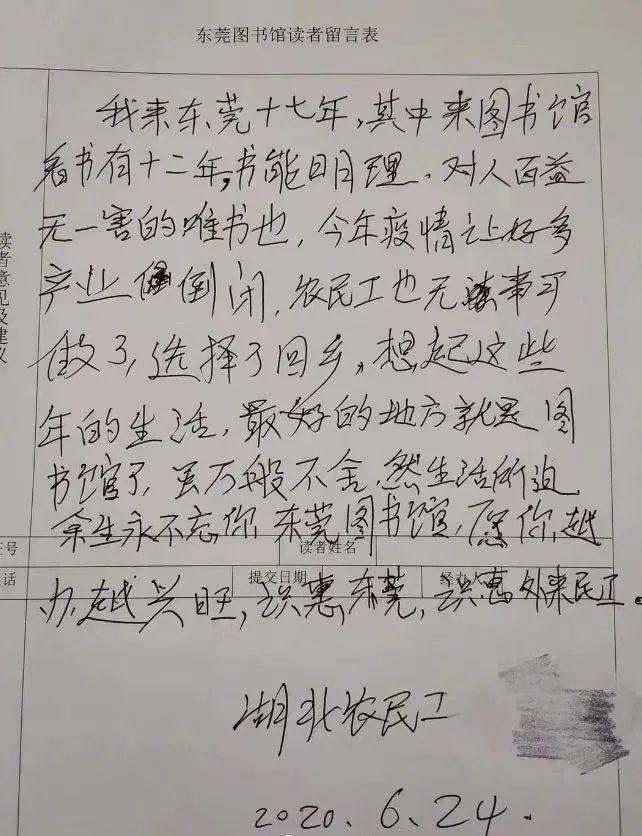 东莞图书馆读者留言表
我来东莞十七年,其中来图书馆
看书有十二年,书能明理、对人百益
无一害的唯书也,今年疫情让好多
产业倒闭,农民工也无事可
做了,选择了回乡,想起这些
年的生活,最好的地方就是图
书馆了,虽万般不舍,然生活所迫,
余生永不忘你,东莞图书馆,愿你越
办越兴旺,识惠东莞,识惠外来民工。
读者意见及建议
证号
读者姓名
话
提交日期
经办
湖北农民工
2020.6.24.